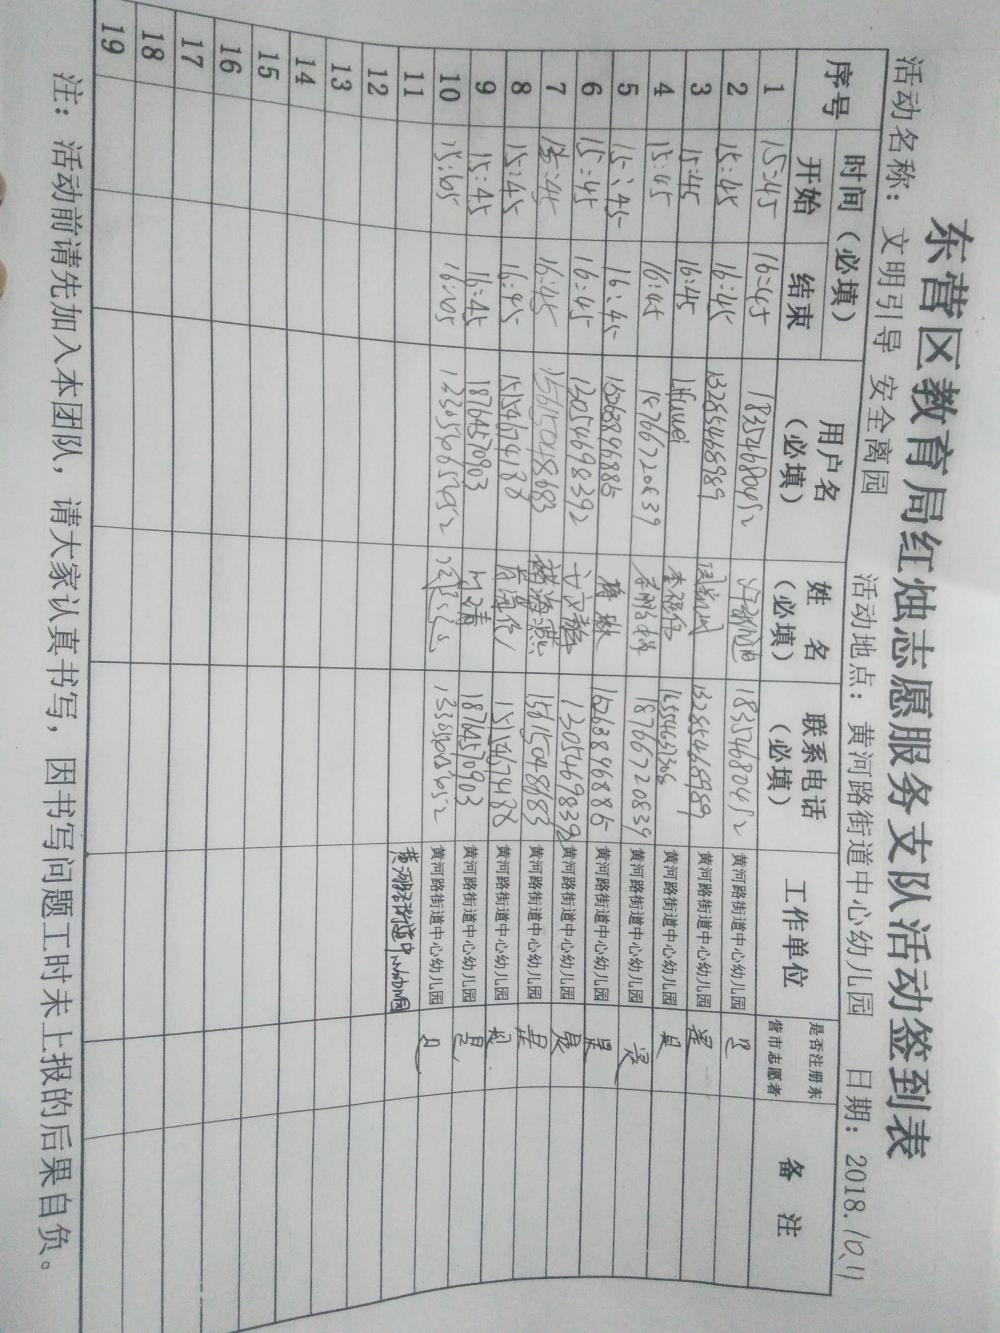 东营区教育局红烛志愿服务支队活动签到表
活动名称：文明引导 安全离园 活动地点：黄河路街道中心幼儿园 日期：2018.10.11
序号 时间（必填） 用户名（必填） 姓 名（必填） 联系电话（必填） 工作单位 是否注册东营市志愿者 备 注
开始 结束
1 15:45 16:45 18354680452 18354680452 黄河路街道中心幼儿园 是
2 15:45 16:45 13285468989 13285468989 黄河路街道中心幼儿园 是
3 15:45 16:45 黄河路街道中心幼儿园 是
4 15:45 16:45 18766720839 18766720839 黄河路街道中心幼儿园 是
5 15:45 16:45 黄河路街道中心幼儿园 是
6 15:45 16:45 13054698392 13054698392 黄河路街道中心幼儿园 是
7 15:45 16:45 15615048683 15615048683 黄河路街道中心幼儿园 是
8 15:45 16:45 黄河路街道中心幼儿园 是
9 15:45 16:45 18764570903 18764570903 黄河路街道中心幼儿园 是
10 黄河路街道中心幼儿园 是
11 黄河路街道中心幼儿园
12
13
14
15
16
17
18
19
注：活动前请先加入本团队，请大家认真书写，因书写问题工时未上报的后果自负。